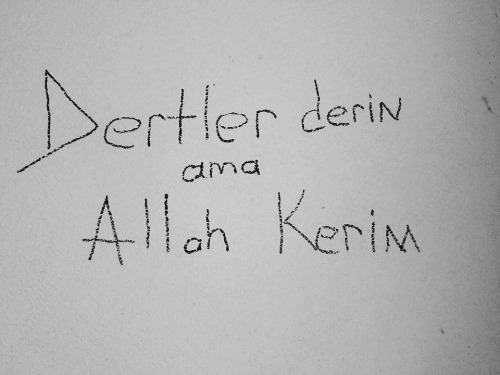 Dertler derin
ama
Allah Kerim